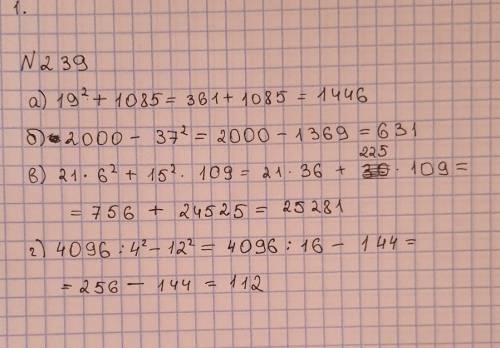 1.
N239
а) 19² + 1085 = 361 + 1085 = 1446
б) 2000 - 37² = 2000 - 1369 = 631
в) 21 · 6² + 15² · 109 = 21 · 36 + 225 · 109 =
= 756 + 24525 = 25281
г) 4096 : 4² - 12² = 4096 : 16 - 144 =
= 256 - 144 = 112